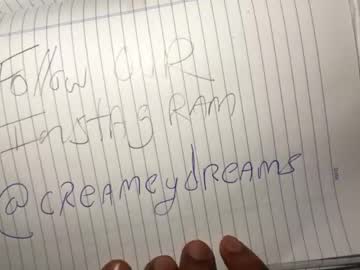 Follow OUR
InstagRAM
@cREAMEydREAMS